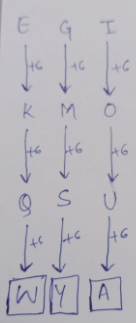 E G I
+6 +6 +6
K M O
+6 +6 +6
Q S U
+6 +6 +6
W Y A